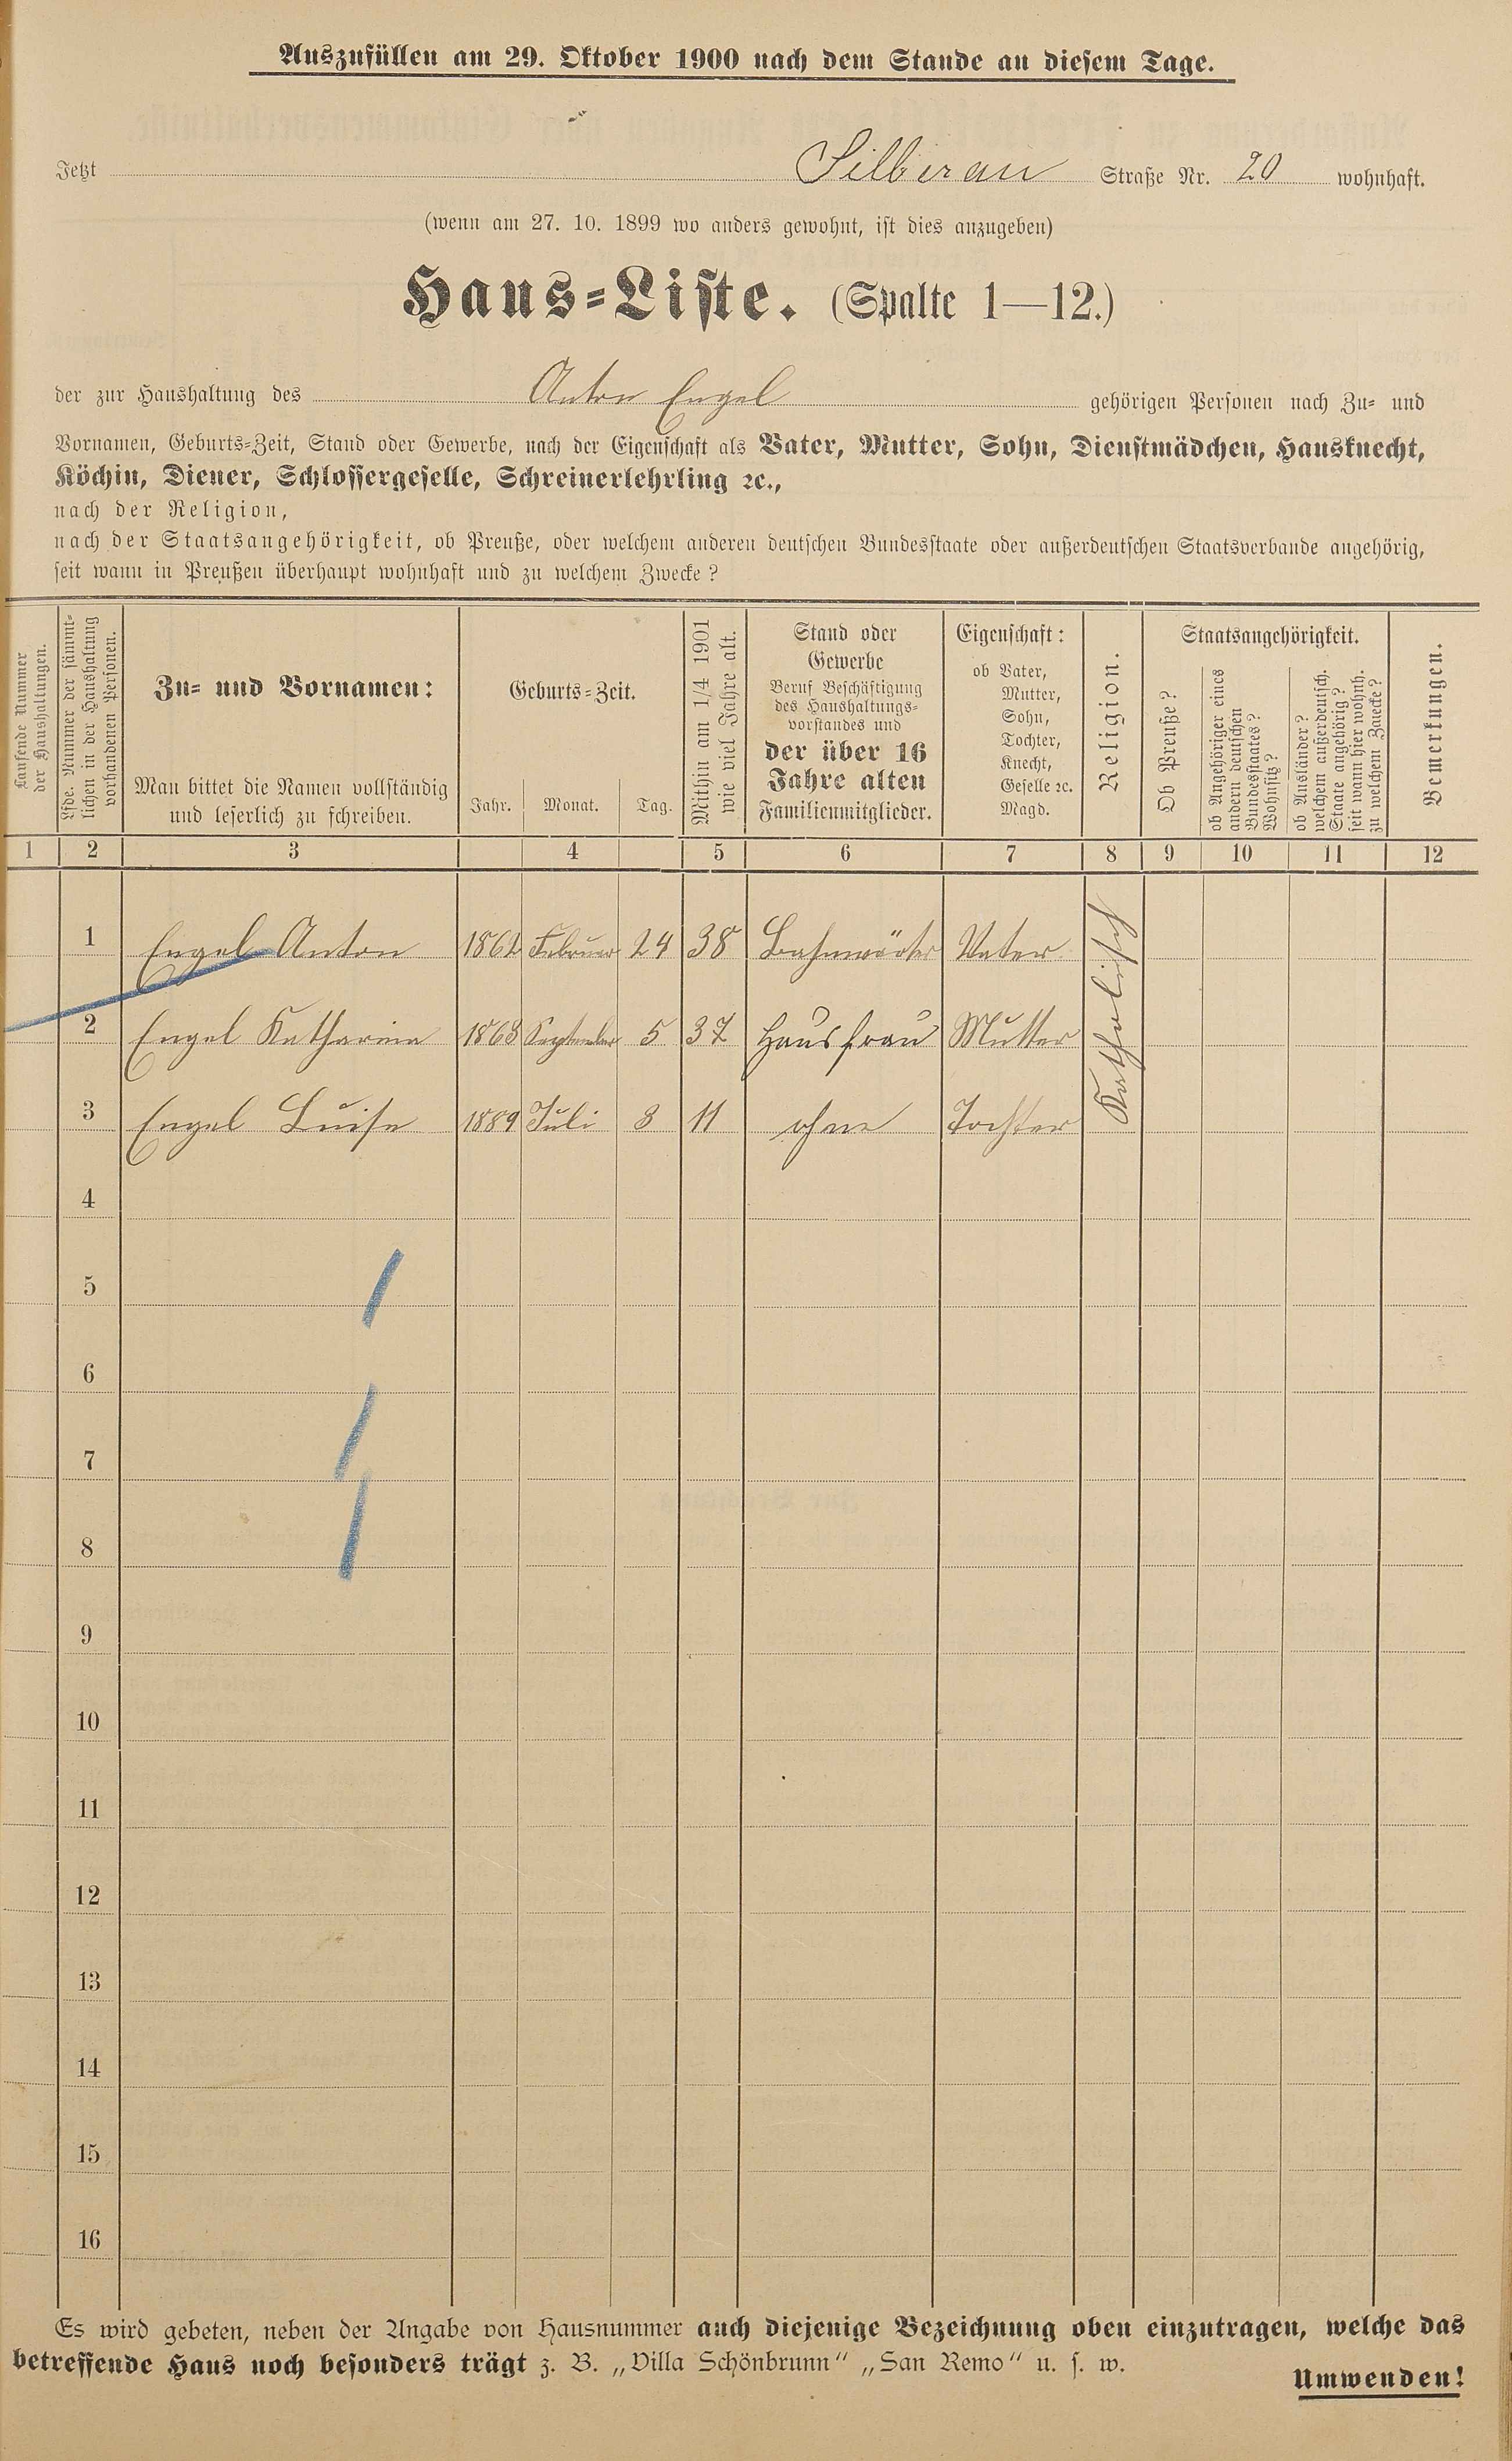 Auszufüllen am 29. Oktober 1900 nach dem Stande an diesem Tage.
Jetzt Silberau Straße Nr. 20 wohnhaft.
(wenn am 27. 10. 1899 wo anders gewohnt, ist dies anzugeben)
Haus-Liste. (Spalte 1—12.)
der zur Haushaltung des Anton Engel gehörigen Personen nach Zu- und
Vornamen, Geburts-Zeit, Stand oder Gewerbe, nach der Eigenschaft als Vater, Mutter, Sohn, Dienstmädchen, Hausknecht,
Köchin, Diener, Schlossergeselle, Schreinerlehrling ꝛc.,
nach der Religion,
nach der Staatsangehörigkeit, ob Preuße, oder welchem anderen deutschen Bundesstaate oder außerdeutschen Staatsverbande angehörig,
seit wann in Preußen überhaupt wohnhaft und zu welchem Zwecke?
Laufende Nummer
der Haushaltungen.
Lfde. Nummer der sämmt-
lichen in der Haushaltung
vorhandenen Personen.
Zu- und Vornamen:
Man bittet die Namen vollständig
und leserlich zu schreiben.
Geburts-Zeit.
Jahr. Monat. Tag.
Mithin am 1/4 1901
wie viel Jahre alt.
Stand oder
Gewerbe
Beruf Beschäftigung
des Haushaltungs-
vorstandes und
der über 16
Jahre alten
Familienmitglieder.
Eigenschaft:
ob Vater,
Mutter,
Sohn,
Tochter,
Knecht,
Geselle ꝛc.
Magd.
Religion.
Staatsangehörigkeit.
Ob Preuße?
ob Angehöriger eines
andern deutschen
Bundesstaates?
Wohnsitz?
ob Ausländer?
welchem außerdeutsch.
Staate angehörig?
seit wann hier wohnh.
zu welchem Zwecke?
Bemerkungen.
1 2 3 4 5 6 7 8 9 10 11 12
1 Engel Anton 1862 Februar 24 38 Bahnwärter Vater Katholisch
2 Engel Katharina 1863 September 5 37 Hausfrau Mutter
3 Engel Luise 1889 Juli 8 11 ohne Tochter
4
5
6
7
8
9
10
11
12
13
14
15
16
Es wird gebeten, neben der Angabe von Hausnummer auch diejenige Bezeichnung oben einzutragen, welche das
betreffende Haus noch besonders trägt z. B. „Villa Schönbrunn“ „San Remo“ u. s. w.
Umwenden!